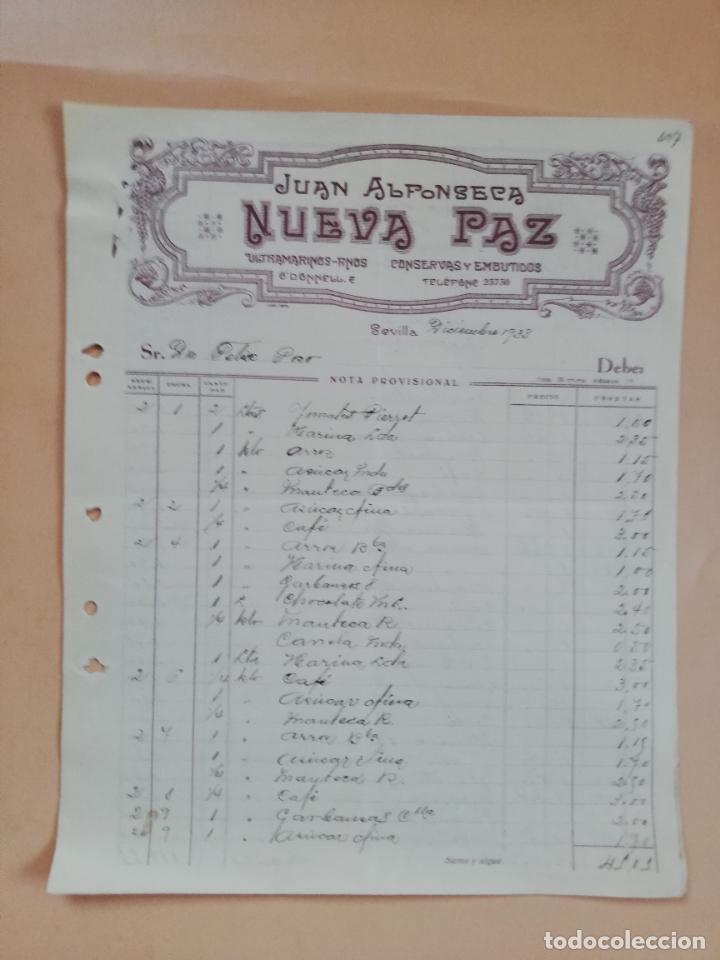 407
JUAN ALFONSECA
NUEVA PAZ
ULTRAMARINOS-FINOS CONSERVAS Y EMBUTIDOS
O'DONNELL, 2 TELÉFONO 23730
Sevilla Diciembre 1933
Sr. Dn Debe:
NOTA PROVISIONAL
PRECIO PESETAS
2 1 2 Ltas Tomates Pierrot 1,00
1 " Harina Lda 2,35
1 kilo Arroz 1,15
1 " Azúcar 1,70
1/4 " Manteca 2,50
2 2 1 " Azúcar fina 1,70
1/4 " Café 3,00
2 4 1 " Arroz Bta 1,15
1 " Harina fina 1,00
1 " Garbanzos 2,00
1 Chocolate 2,40
1/4 kilo Manteca R. 2,50
Canela 0,50
1 Lta Harina Lda 2,35
2 1/4 kilo Café 3,00
1 " Azúcar fina 1,70
1/4 " Manteca R. 2,50
2 7 1 " Arroz Bta 1,15
1 " Azúcar fina 1,70
" Manteca R. 2,50
2 8 1/4 " Café 3,00
2 9 1 " Garbanzos 2,00
2 9 1 " Azúcar fina 1,70
Suma y sigue
todocoleccion
todocoleccion.net